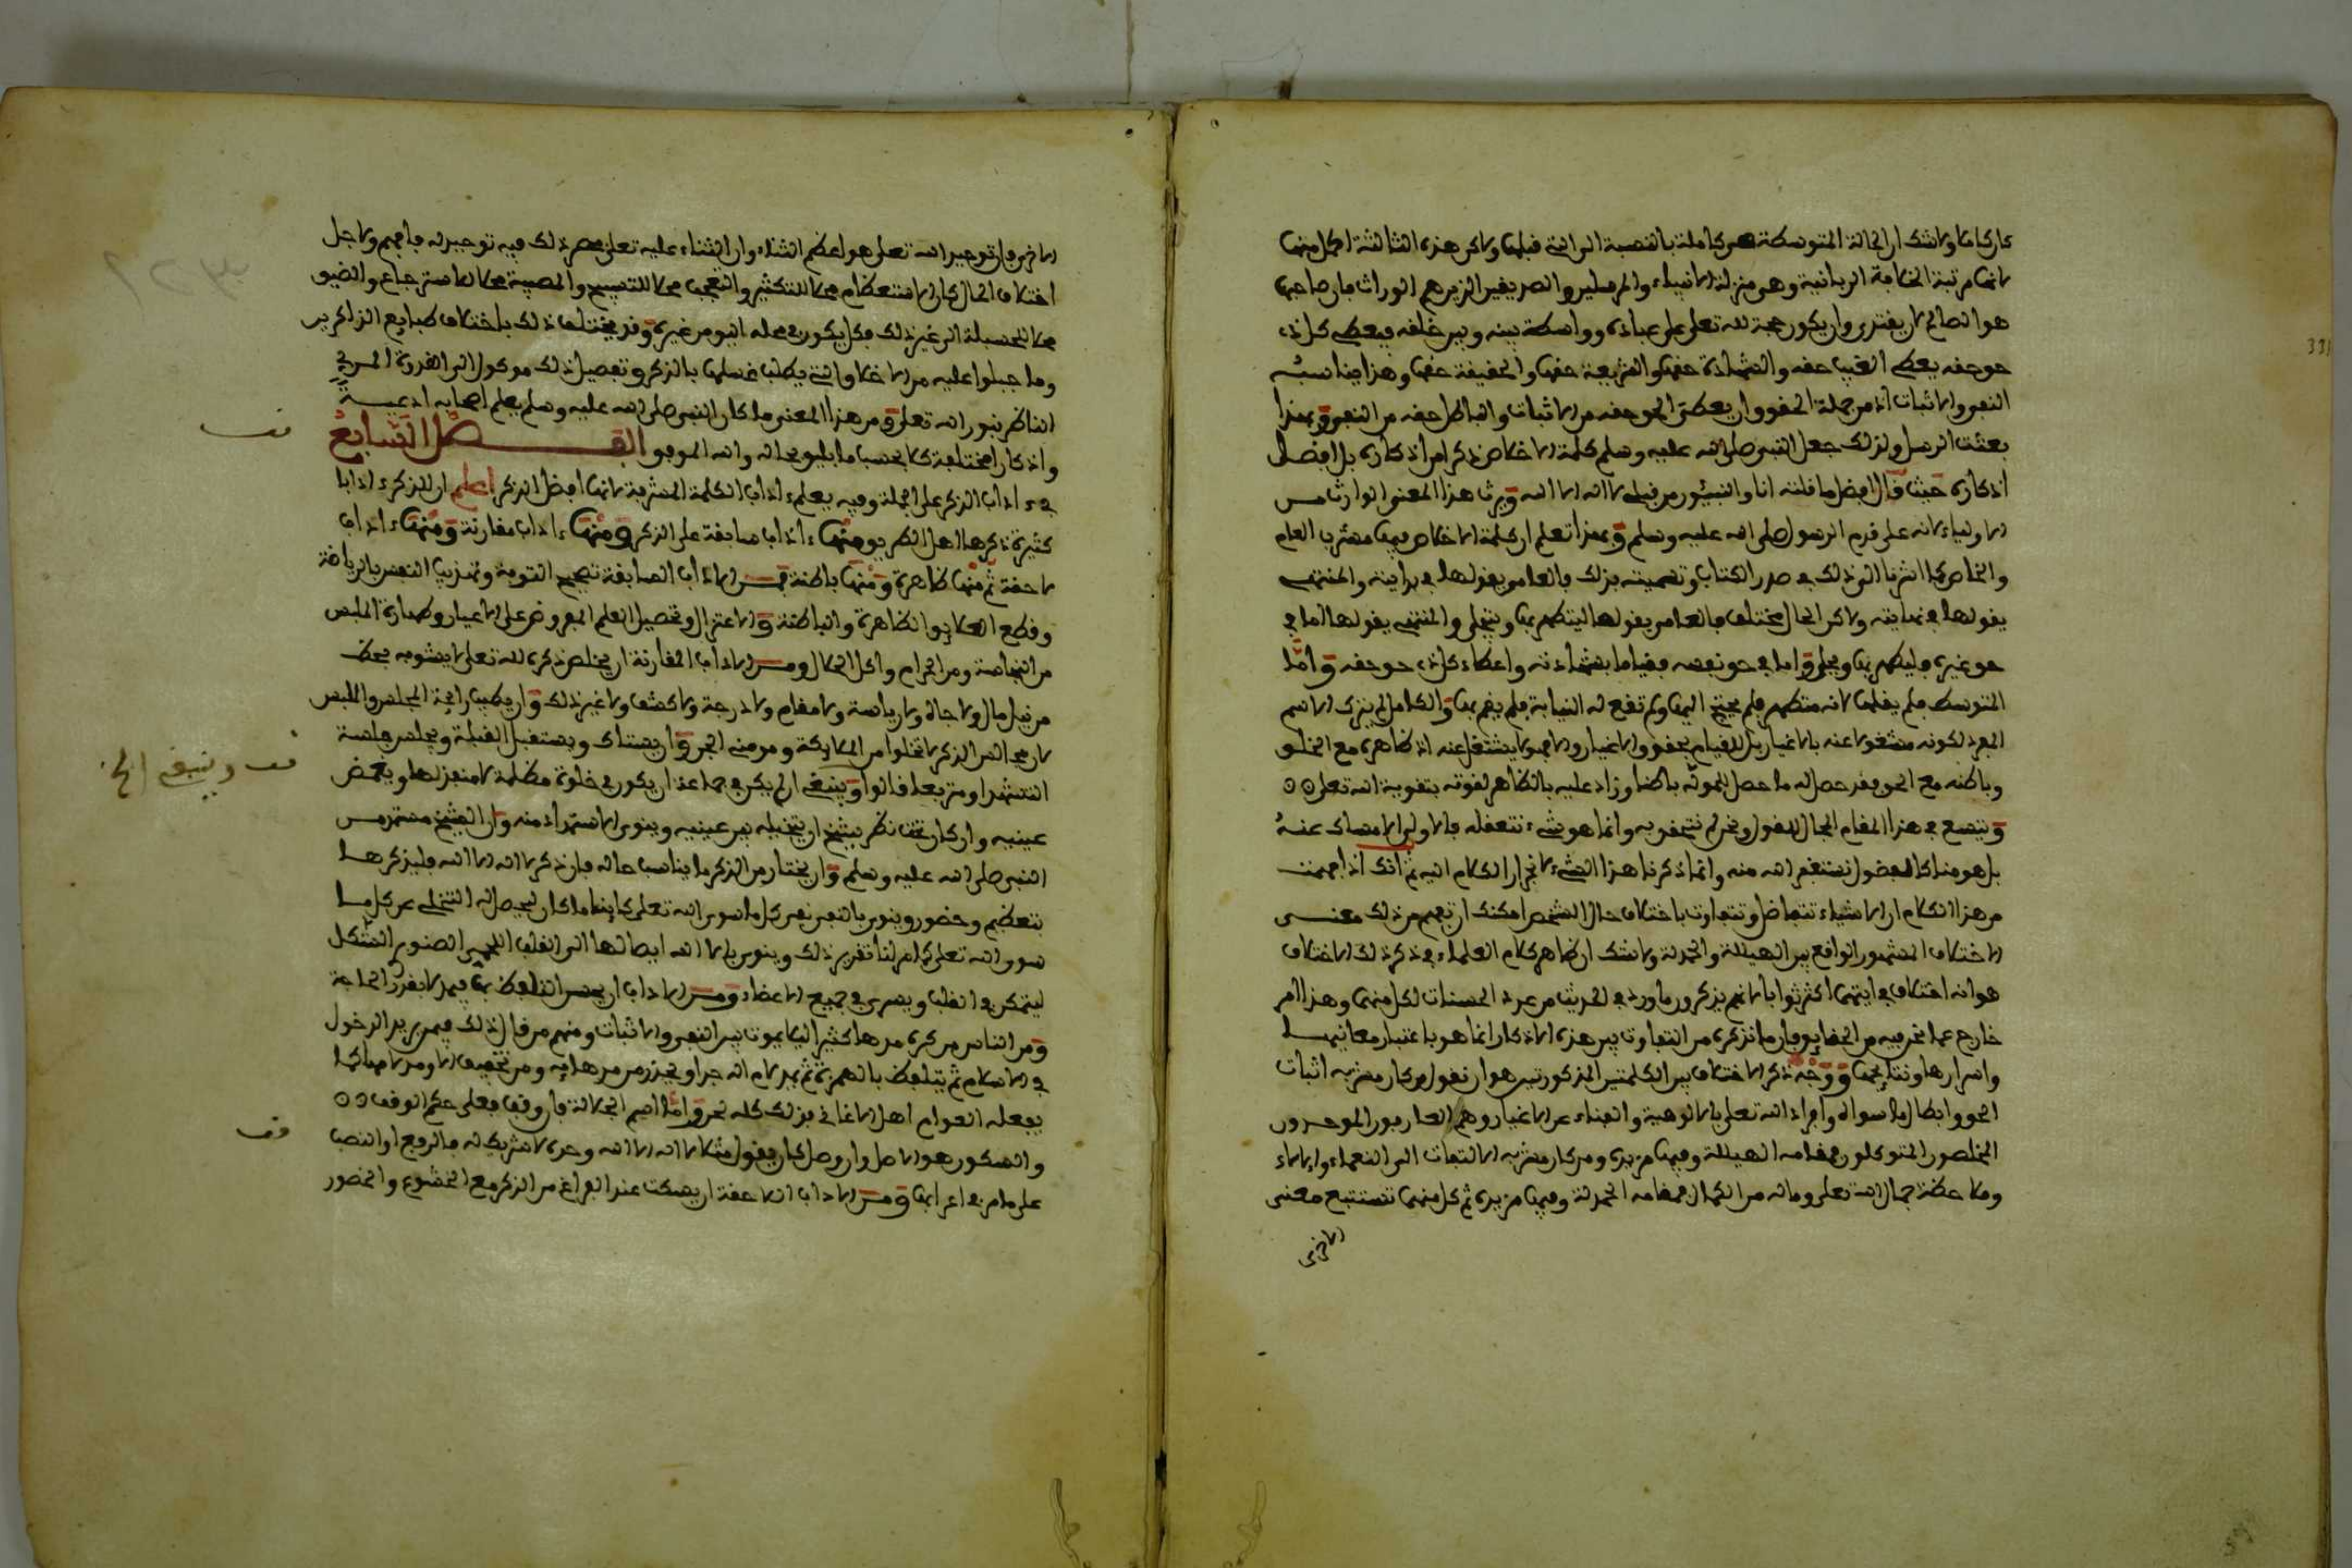 كان كاملا ولا شك ان الحالة المتوسطة هي كاملة بالنسبة الى التي قبلها ولاكن هذه الثالثة اكمل منها
لانها مرتبة الخلافة الربانية وهو منزلة الانبياء والمرسلين والصديقين الذين هم الوراث فان صاحبها
هو الصالح لان يقتدى وان يكون حجة لله تعلى على عباده وواسطة بينه وبين خلقه فيعطي كل ذي
حق حقه يعطي الغيب حقه والشهادة حقها والشريعة حقها والحقيقة حقها وهذا يناسبه
النفي والاثبات اذ من جملة الحقوق ان يعطى الحق حقه من الاثبات والباطل حقه من النفي وبهذا
بعثت الرسل ولذلك جعل النبي صلى الله عليه وسلم كلمة الاخلاص ذكرا من اذكاره بل افضل
اذكاره حيث قال افضل ما قلته انا والنبيئون من قبلي لا اله الا الله ويرث هذا المعنى الوارث من
الاولياء لانه على قدم الرسول صلى الله عليه وسلم وبهذا تعلم ان كلمة الاخلاص فيها مشرب العام
والخاص كما اشرنا الى ذلك في صدر الكتاب وتسميته بذلك فالعامي يقولها في بدايته والمنتهي
يقولها في نهايته ولاكن الحال مختلف فالعامي يقولها ليتطهر بها ويتحلى والمنتهي يقولها اما في
حق غيره فليطهر بها ويحلى واما في حق نفسه فقياما بشهادته واعطاء كل ذي حق حقه واما
المتوسط فلم يقلها لانه متطهر فلم يحتج اليها ولم تقع له النيابة فلم يقم بها والكامل لم يترك الاسم
المفرد لكونه مشغولا عنه بالاغيار بل للقيام بحقوق الاغيار والا فهو لا يشتغل عنه اذ ظاهره مع الخلق
وباطنه مع الحق فقد حصل له ما حصل لمن فوقه باطنا وزاد عليه بالظاهر لقوته بتقوية الله تعلى
ويتسع في هذا المقام المجال للقول ونحن لم نتحقق به وانما هو شيء نتعقله فالاولى الامساك عنه
بل هو منا كالفضول نستغفر الله منه وانما ذكرنا هذا الشيء لانجرار الكلام اليه ثم انك اذا فهمت
من هذا الكلام ان الاشياء تتفاضل وتتفاوت باختلاف حال الشخص امكنك ان تفهم من ذلك معنى
الاختلاف المشهور الواقع بين الهيللة والحمدلة ولا شك ان ظاهر كلام العلماء في ذكر ذلك الاختلاف
هو انه اختلاف في ايتهما اكثر ثوابا لانهم يذكرون ما ورد في الحديث من عدد الحسنات لكل منهما وهذا امر
خارج عما نحن فيه من الحقايق فان ما نذكره من التفاوت بين هذه الاذكار انما هو باعتبار معانيها
واسرارها ونتايجها ووجه ذكر الاختلاف بين الكلمتين المذكورتين هو ان نقول من كان مشربه اثبات
الحق وابطال ما سواه وافراد الله تعلى بالالوهية والفناء عن الاغيار وهم العارفون الموحدون
المخلصون المتوكلون فمقامه الهيللة وفيها مزيده ومن كان مشربه الالتفات الى النعماء والالاء
وملاحظة جمال الله تعلى وماله من الكمال فمقامه الحمدلة وفيها مزيده ثم كل منهما تستتبع معنى
الاخرى
الاخرى فان توحيد الله تعلى هو اعظم الثناء وان الثناء عليه تعلى بحصر ذلك فيه توحيد له فافهم ولاجل
اختلاف الحال كان الاستعظام محلا للتكبير والتعجب محلا للتسبيح والمصيبة محلا للاسترجاع والضيق
محلا للحسبلة الى غير ذلك فكل يكون في محله اليق من غيره وقد يختلف ذلك باختلاف طبايع الذاكرين
وما جبلوا عليه من الاخلاق التي يطلب غسلها بالذكر وتفصيل ذلك موكول الى القدوة المربي
الناظر بنور الله تعلى ومن هذا المعنى ما كان النبي صلى الله عليه وسلم يعلم اصحابه ادعية
واذكارا مختلفة كلا بحسب ما يليق بحاله والله الموفق الفصل السابع
في ءاداب الذكر على الجملة وفيه يعلم ءاداب الكلمة المشرفة لانها افضل الذكر اعلم ان للذكر ءادابا
كثيرة ذكرها اهل الطريق منها ءاداب سابقة على الذكر ومنها ءاداب مقارنة ومنها ءاداب
لاحقة ثم منها ظاهرة ومنها باطنة فمن الاداب السابقة تصحيح التوبة وتهذيب النفس بالرياضة
وقطع العلايق الظاهرة والباطنة والاعتزال وتحصيل العلم المفروض على الاعيان وطهارة الملبس
من النجاسة ومن الحرام واكل الحلال ومن الاداب المقارنة ان يخلص ذكره لله تعلى لا يشوبه بحظ
من نيل مال ولا جاه ولا رياسة ولا مقام ولا درجة ولا كشف ولا غير ذلك وان يطيب رايحة المجلس والملبس
لان مجالس الذكر لا تخلو من الملايكة ومومني الجن وان يستاك ويستقبل القبلة ويجلس جلسة
التشهد او متربعا قالوا وينبغي ان لم يكن في جماعة ان يكون في خلوة مظلمة لا منفذ لها ويغمض
عينيه وان كان تحت نظر شيخ ان يتخيله بين عينيه وينوي الاستمداد منه وان الشيخ مستمد من
النبي صلى الله عليه وسلم وان يختار من الذكر ما يناسب حاله فان ذكر لا اله الا الله فليذكرها
بتعظيم وحضور وينوي بالنفي نفي كل ما سوى الله تعلى كاينا ما كان ليحصل له التخلي عن كل ما
سوى الله تعلى كما مر لنا تقرير ذلك وينوي بالا الله ايصالها الى القلب اللحمي الصنوبري الشكل
ليتمكن في القلب ويسري في جميع الاعضاء ومن الاداب ان يحسن التلفظ بها فيمد لا بقدر الحاجة
ومن الناس من كره مدها كثيرا ليلا يموت بين النفي والاثبات ومنهم من قال ذلك فيمن يريد الدخول
في الاسلام ثم يتلفظ بالهمزة ثم يمد لام اله جدا ويحذر من مد هايه ومن تخفيف الا ومن لا مهاكما
يفعله العوام اهل الاغاني فذلك كله لحن واما اسم الجلالة فان وقف فعلى حكم الوقف
والسكون هو الاصل وان وصل كان يقول مثلا لا اله الا الله وحده لا شريك له فالرفع او النصب
على ما مر في اعرابها ومن الاداب اللاحقة ان يسكت عند الفراغ من الذكر مع الخشوع والحضور
قف
قف وينبغي الخ
قف